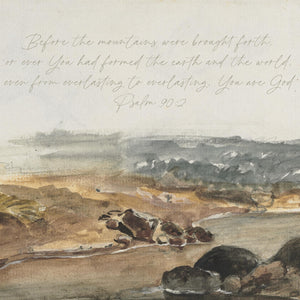 Before the mountains were brought forth,
or ever You had formed the earth and the world,
even from everlasting to everlasting, You are God.
Psalm 90:2